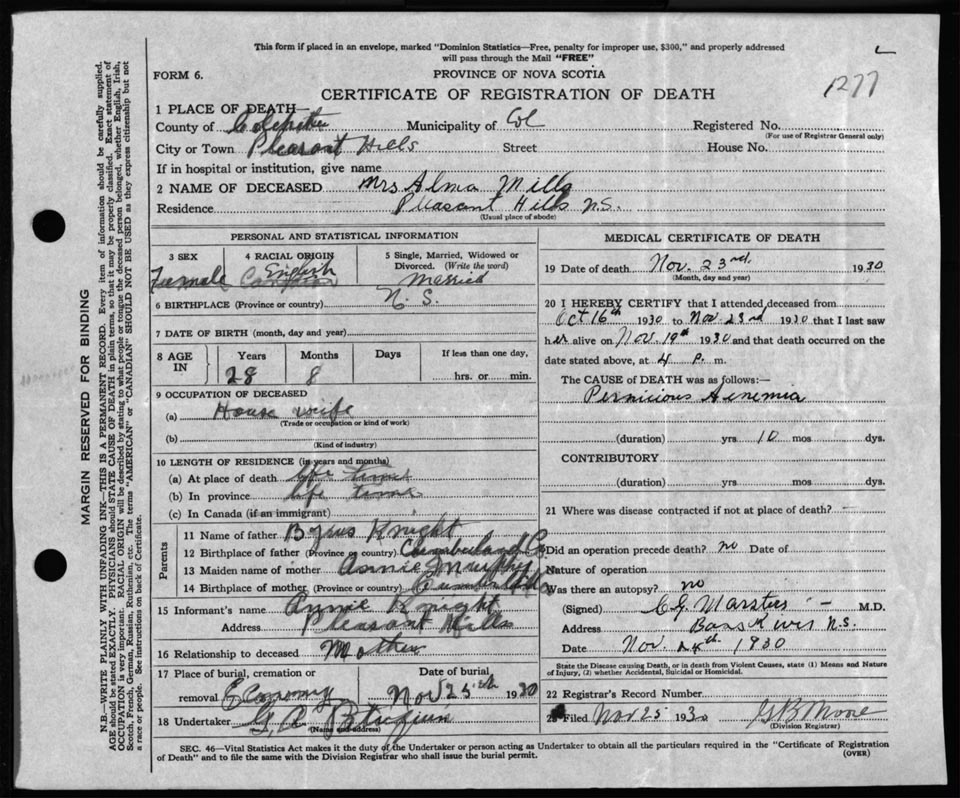 This form if placed in an envelope, marked "Dominion Statistics—Free, penalty for improper use, $300," and properly addressed
will pass through the Mail "FREE"
FORM 6.
PROVINCE OF NOVA SCOTIA
1277
CERTIFICATE OF REGISTRATION OF DEATH
1 PLACE OF DEATH—
County of Colchester Municipality of Col Registered No.
(For use of Registrar General only)
City or Town Pleasant Hills Street House No.
If in hospital or institution, give name
2 NAME OF DECEASED Mrs Alma Mills
Residence Pleasant Hills N.S.
(Usual place of abode)
PERSONAL AND STATISTICAL INFORMATION
3 SEX 4 RACIAL ORIGIN 5 Single, Married, Widowed or
Divorced. (Write the word)
Female English Married
6 BIRTHPLACE (Province or country) N. S.
7 DATE OF BIRTH (month, day and year)
8 AGE IN Years Months Days If less than one day,
28 8 hrs. or min.
9 OCCUPATION OF DECEASED
(a) House wife
(Trade or occupation or kind of work)
(b)
(Kind of industry)
10 LENGTH OF RESIDENCE (in years and months)
(a) At place of death life time
(b) In province life time
(c) In Canada (if an immigrant)
Parents
11 Name of father Knight
12 Birthplace of father (Province or country) Cumberland Co
13 Maiden name of mother Annie Murphy
14 Birthplace of mother (Province or country)
15 Informant's name Annie Knight
Address Pleasant Hills
16 Relationship to deceased Mother
17 Place of burial, cremation or Date of burial
removal Economy Nov 25th 1930
18 Undertaker G. A.
(Name and address)
MEDICAL CERTIFICATE OF DEATH
19 Date of death Nov. 23rd. 1930
(Month, day and year)
20 I HEREBY CERTIFY that I attended deceased from
Oct 16th 1930 to Nov. 23rd 1930 that I last saw
her alive on Nov. 19th 1930 and that death occurred on the
date stated above, at 4 P. m.
The CAUSE of DEATH was as follows:—
Pernicious Aenemia
(duration) yrs 10 mos dys.
CONTRIBUTORY
(duration) yrs. mos. dys.
21 Where was disease contracted if not at place of death?
Did an operation precede death? no Date of
Nature of operation
Was there an autopsy? no
(Signed) C G Marsters M.D.
Address Bass River N.S.
Date Nov. 24th. 1930
State the Disease causing Death, or in death from Violent Causes, state (1) Means and Nature
of Injury, (2) whether Accidental, Suicidal or Homicidal.
22 Registrar's Record Number
Filed Nov 25 1930 G B Moore
(Division Registrar)
SEC. 46—Vital Statistics Act makes it the duty of the Undertaker or person acting as Undertaker to obtain all the particulars required in the "Certificate of Registration
of Death" and to file the same with the Division Registrar who shall issue the burial permit.
(OVER)
MARGIN RESERVED FOR BINDING
N.B.—WRITE PLAINLY WITH UNFADING INK—THIS IS A PERMANENT RECORD. Every item of information should be carefully supplied.
AGE should be stated EXACTLY. PHYSICIANS should STATE CAUSE OF DEATH in plain terms, so that it may be properly classified. Exact statement of
OCCUPATION is very important. RACIAL ORIGIN will be described by stating to what people or tongue the deceased person belonged, whether English, Irish,
Scotch, French, German, Russian, Ruthenian, etc. The terms "AMERICAN" or "CANADIAN" SHOULD NOT BE USED as they express citizenship but not
a race or people. See instructions on back of Certificate.